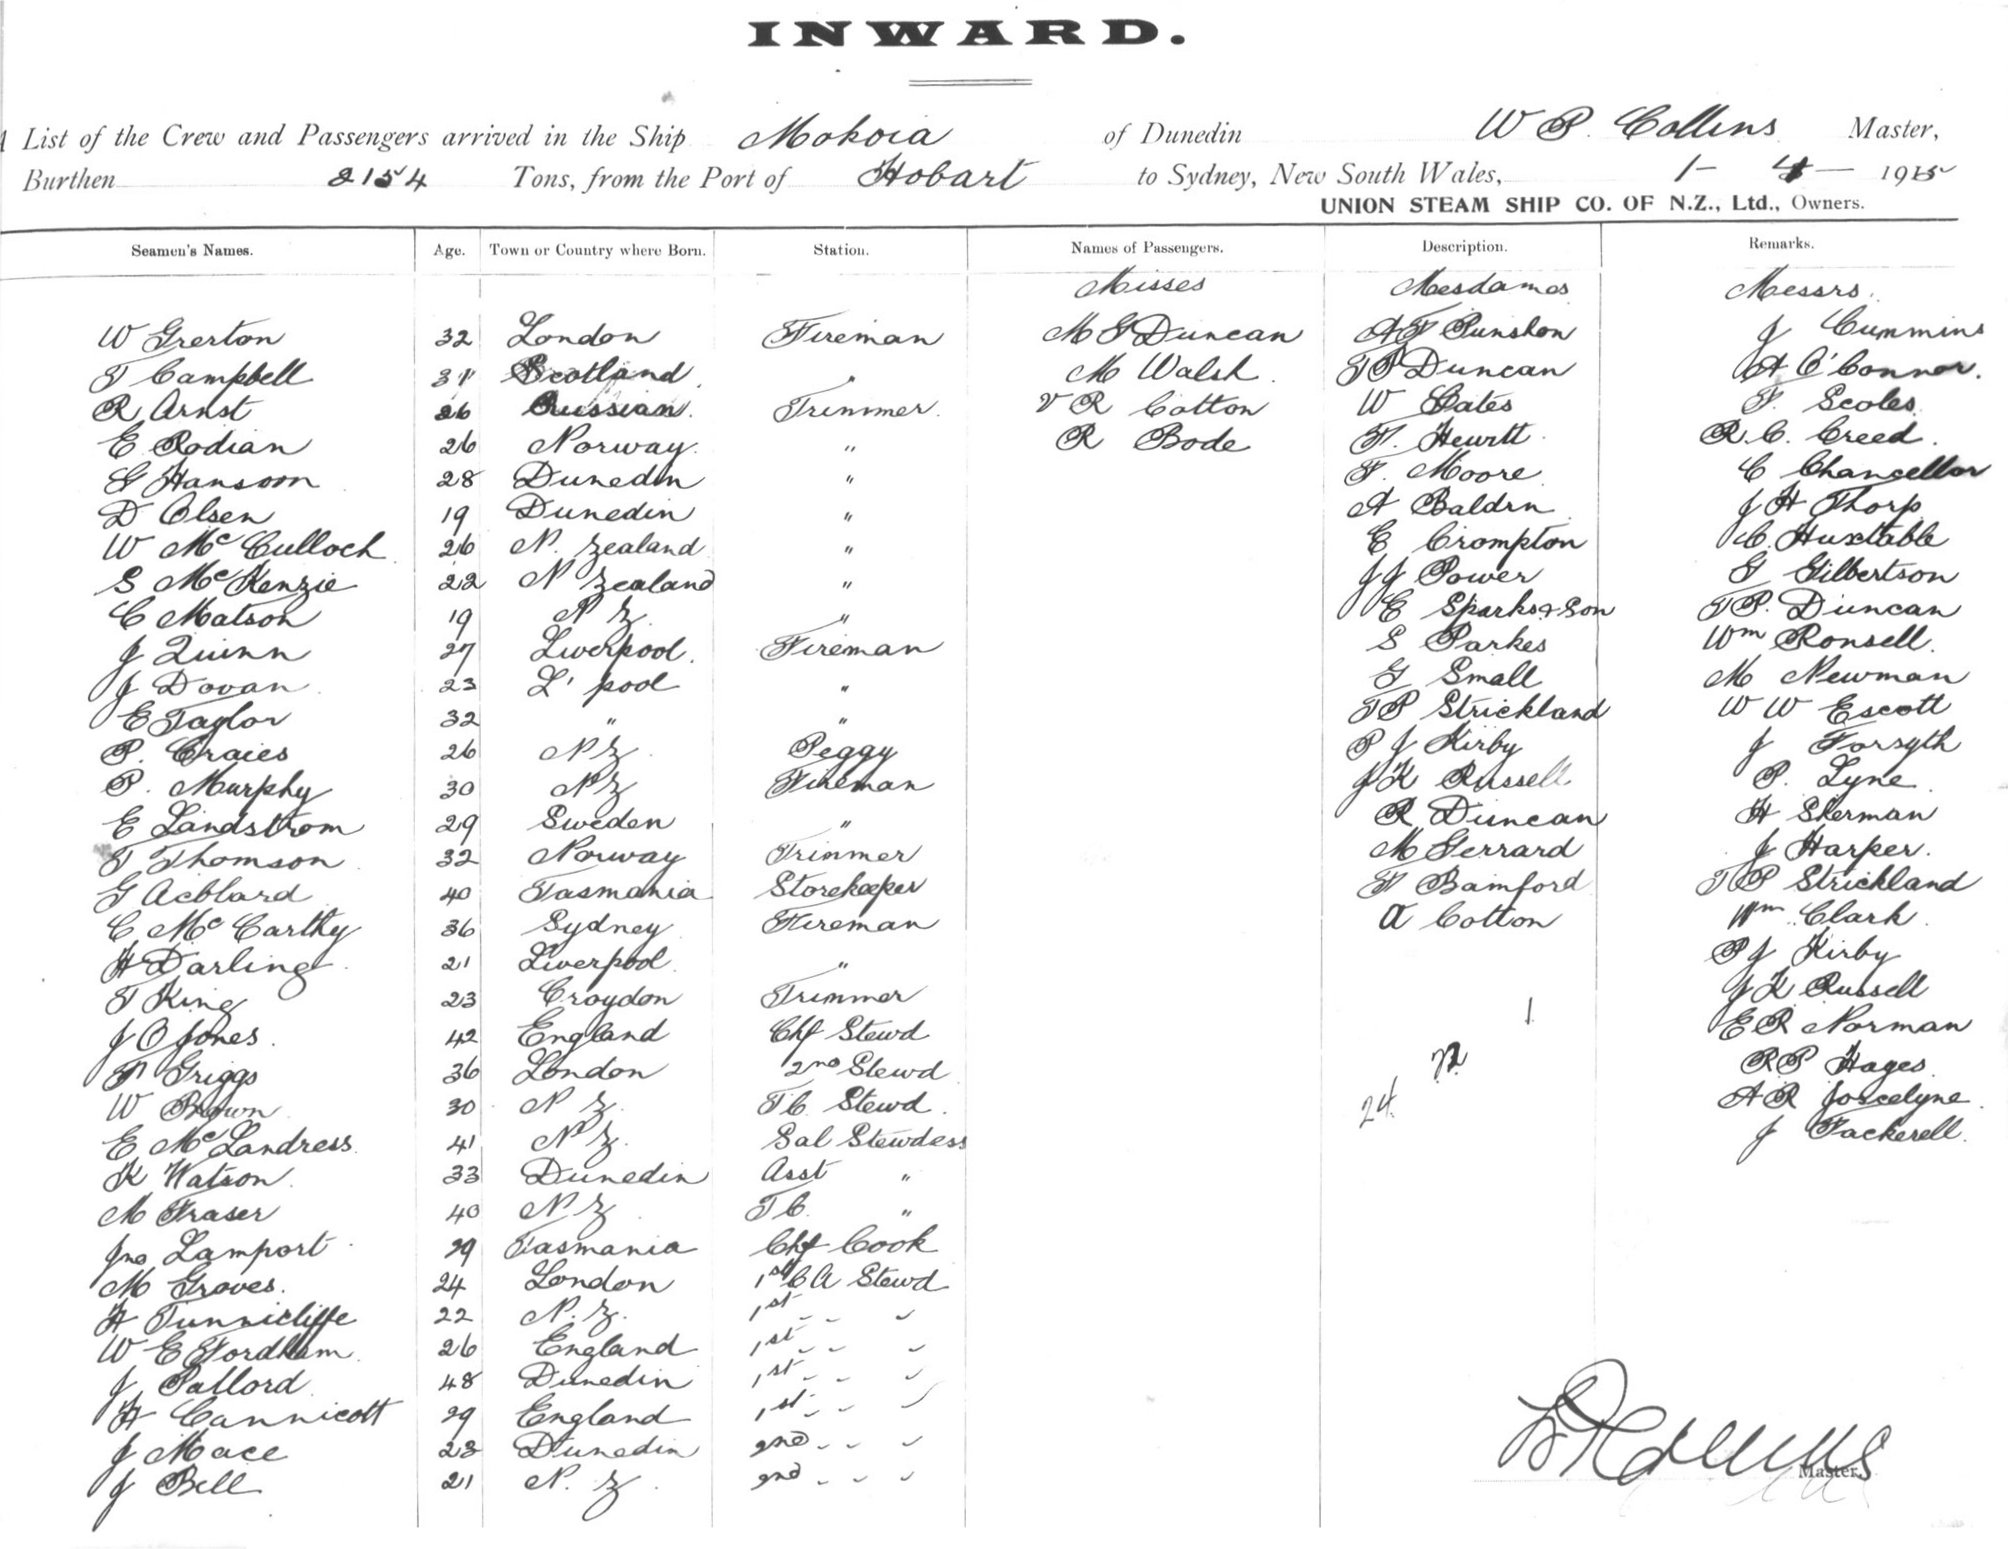 INWARD.
A List of the Crew and Passengers arrived in the Ship Mokoia of Dunedin W P. Collins Master,
Burthen 2154 Tons, from the Port of Hobart to Sydney, New South Wales, 1 - 4 - 1915
UNION STEAM SHIP CO. OF N.Z., Ltd., Owners.
Seamen's Names. Age. Town or Country where Born. Station. Names of Passengers. Description. Remarks.
Misses Mesdames Messrs.
W Grerton 32 London Fireman M G Duncan A F Punshon J Cummins
T Campbell 31 Scotland " M Walsh T P Duncan A O'Connor.
R Arnst 26 Russian. Trimmer. V R Cotton W Cates F. Scoles
E Rodian 26 Norway. " R Bode F. Hewitt R. C. Creed.
G Hansoon 28 Dunedin " F. Moore C Chancellor
D Olsen 19 Dunedin " A Baldrn J H Thorp
W McCulloch 26 N. Zealand " E Crompton C. Huxtable
S McKenzie 22 N Zealand " J J Power G Gilbertson
C Matson 19 N Z. " E Sparks & Son T P. Duncan
J Quinn 27 Liverpool. Fireman S Parkes Wm Ronsell.
J Dovan 23 L'pool " G Small M Newman
E Taylor 32 " " T P Strickland W W Escott
P. Craies 26 N Z. Peggy P J Kirby J Forsyth
P. Murphy 30 N Z Fireman J K Russell P. Lyne
E Landstrom 29 Sweden " R Duncan H Sherman
T Thomson 32 Norway Trimmer M Gerrard J Harper.
G Acblard 40 Tasmania Storekeeper F Bamford T P Strickland
C McCarthy 36 Sydney Fireman A Cotton Wm Clark
H Darling 21 Liverpool. " P J Kirby
T King 23 Croydon Trimmer J K Russell
J O Jones. 42 England Chf Stewd E R Norman
F Griggs 36 London 2nd Stewd R P Hayes
W Brown 30 N Z. T C Stewd. 24. A R Joscelyne
E McLandress. 41 N Z. Sal Stewdess J Tackerell.
K Watson. 33 Dunedin Asst "
M Fraser 40 N Z. T C. "
Jno Lamport 29 Tasmania Chf Cook
M Groves. 24 London 1st C A Stewd
H Tunnicliffe 22 N. Z. 1st " " "
W E Fordham 26 England 1st " " "
J Pallord 48 Dunedin 1st " " "
H Cannicott 29 England 1st " " "
J Mace 23 Dunedin 2nd " " "
J Bell 21 N. Z. 2nd " " "
W P Collins
Master.